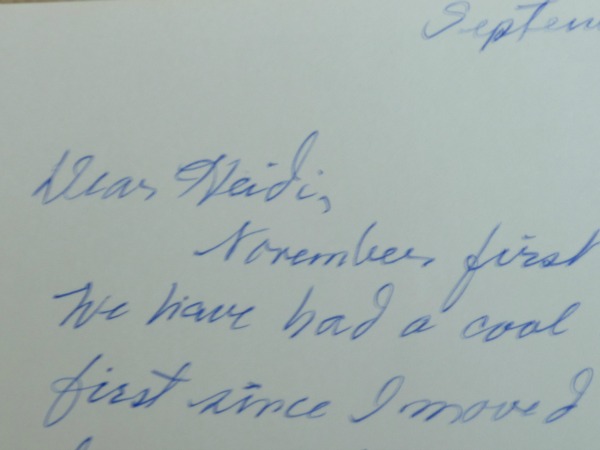 Septem
Dear Heidi,
November first
We have had a cool
first since I moved